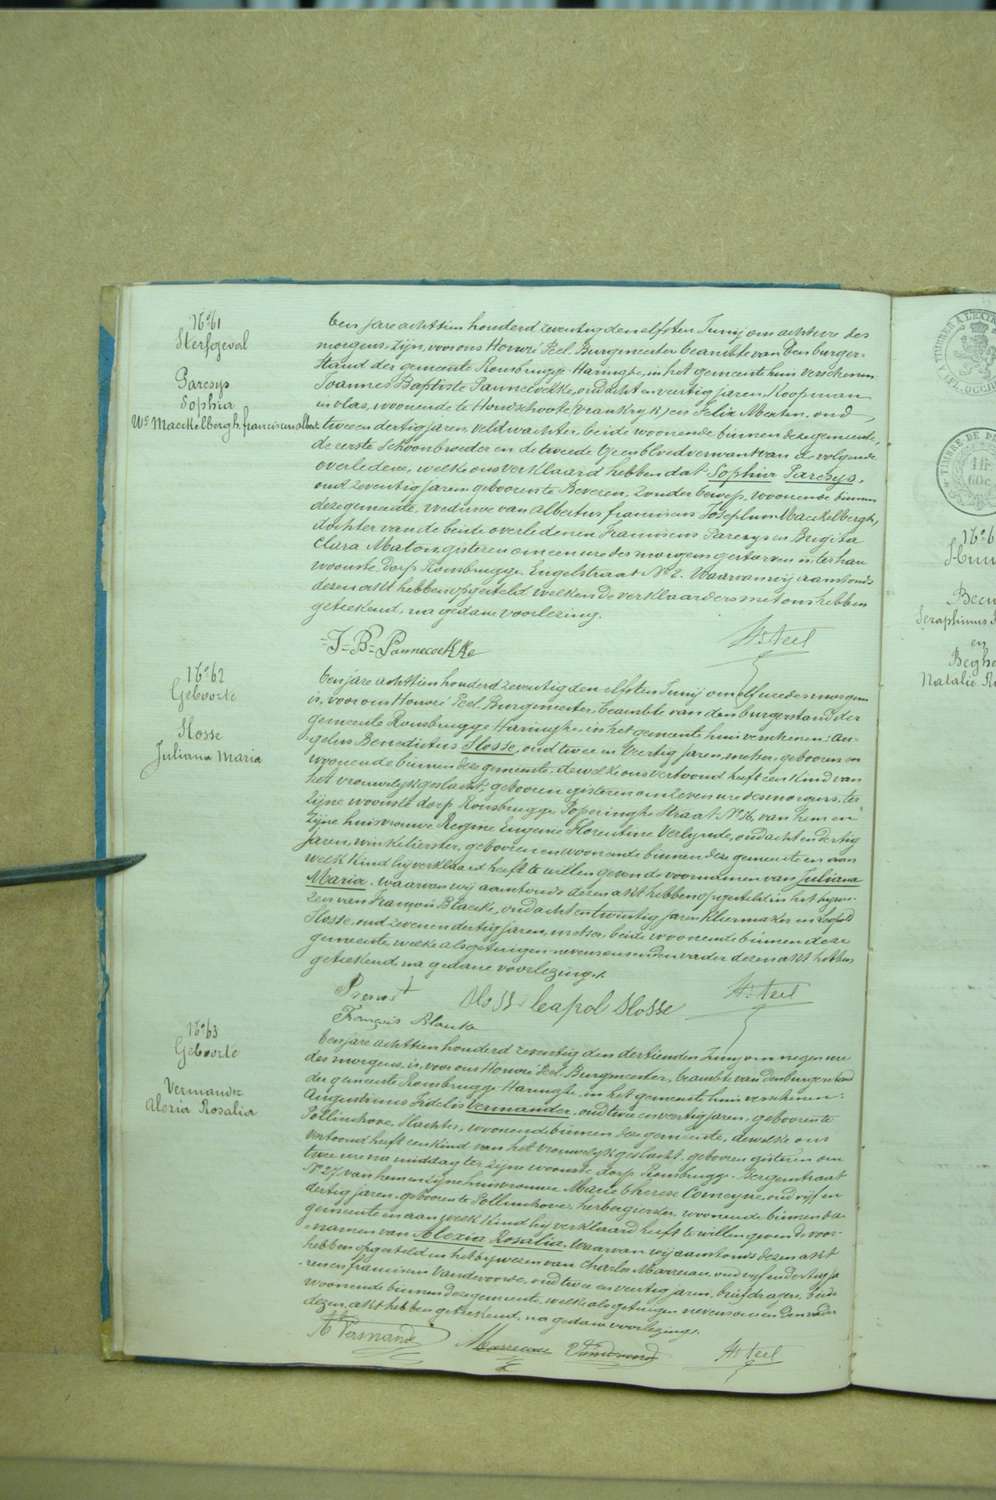 No 61
Sterfgeval
Paresys
Sophia
We Maeckelbergh, franciscus albert
Een jare achttien honderd zeventig den elfsten Junij om acht ure des
morgens, zijn, voor ons Honoré Feel, Burgmeester beambte van den burger-
stand der gemeente Rousbrugge-Haringhe, in het gemeente huis verschenen:
Joannes Baptiste Pannecoekke, oud acht en veertig jaren, Koopman
in vlas, woonende te Hondschoote (vrankryk) en Felix Merten, oud
twee en dertig jaren, veldwachter, beide woonende binnen deze gemeente,
de eerste schoonbroeder en de tweede geen bloedverwant van de volgende
overledene, welke ons verklaard hebben dat Sophia Paresys,
oud zeventig jaren geboren te Beveren, zonder beroep, woonende binnen
deze gemeente, weduwe van Albertus franciscus Josephus Maeckelbergh,
dochter van de beide overledenen Franciscus Paresys en Brigitta
Clara Maton, gisteren om een ure des morgens gestorven is ter haer
woonste dorp Rousbrugge Engelstraat No 2. Waarvan wij aanstonds
dezen akt hebben opgesteld, welken de verklaarders met ons hebben
geteekend, na gedane voorlezing.
J-B- Pannecoekke
Hé Feel
No 62
Geboorte
Slosse
Juliana Maria
Een jare achttien honderd zeventig den elfsten Junij om elf ure des morgens
is, voor ons Honoré Feel, Burgmeester, beambte van den burgerstand der
gemeente Rousbrugge-Haringhe, in het gemeente huis verschenen: An-
gelus Benedictus Slosse, oud twee en veertig jaren, metser, geboren en
woonende binnen deze gemeente, dewelke ons vertoond heeft een kind van
het vrouwelijk geslacht, geboren gisteren om zeven ure des morgens, ter
zijne woonste dorp Rousbrugge Poperinghe straat No 16, van hem en
zijne huisvrouwe Regine Eugenie Florentine Verlynde, oud acht en dertig
jaren, winkelierster, geboren en woonende binnen deze gemeente en aan
welk kind hij verklaard heeft te willen geven de voornamen van Juliana
Maria. waarvan wij aanstonds dezen akt hebben opgesteld in het bijwe-
zen van François Blaeke, oud acht en twintig jaren kleermaker en Leopold
Slosse, oud zeven en dertig jaren, metser, beide woonende binnen deze
gemeente, welke als getuigen nevens ons en den vader dezen akt hebben
geteekend, na gedane voorlezing.
Slosse leopol slosse
Hé Feel
François
No 63
Geboorte
Vermander
Alexia Rosalia
Een jare achttien honderd zeventig den dertienden Junij om negen ure
des morgens, is, voor ons Honoré Feel, Burgmeester, beambte van den burgerstand
der gemeente Rousbrugge-Haringhe, in het gemeente huis verschenen:
Augustinus Fidelis Vermander, oud twee en veertig jaren, geboren te
Pollinkhove, Slachter, woonende binnen deze gemeente, dewelke ons
vertoond heeft een kind van het vrouwelijk geslacht, geboren gisteren om
twee ure na middag ter zijne woonste dorp Rousbrugge Bergenstraat
No 27, van hem en zijne huisvrouwe Marie therese Comeyne, oud vijf en
dertig jaren, geboren te Pollinkhove, herbergierster, woonende binnen deze
gemeente en aan welk kind hij verklaard heeft te willen geven de voor-
namen van Alexia Rosalia. Waarvan wij aanstonds dezen akt
hebben opgesteld in het bijwezen van Charles Marreau, oud vijf en dertig ja
ren en franciscus Vandevoorde, oud twee en veertig jaren, briefdrager, beide
woonende binnen deze gemeente, welke als getuigen nevens ons en den vader
dezen akt hebben geteekend, na gedane voorlezing.
Hé Feel
No 6
Beghe
Natalie